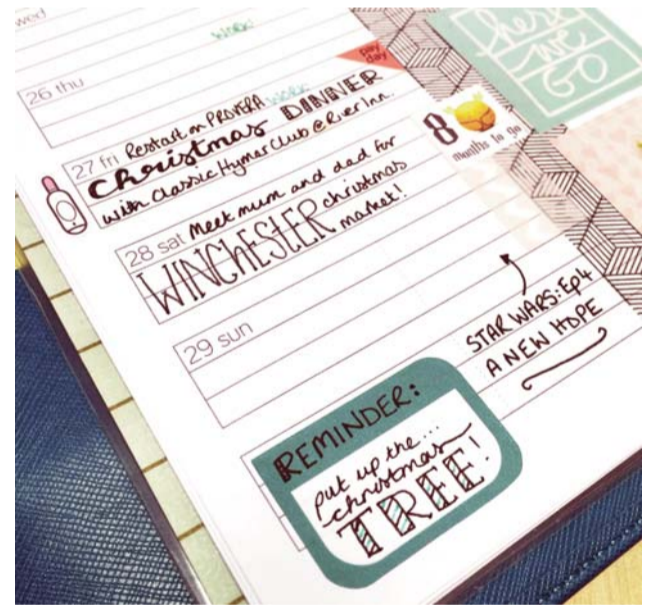 wed
WORK!
26 thu
pay
day
here
we
GO
27 fri Restart on PROVERA WORK
Christmas DINNER
with Classic Hymer Club @ River Inn.
8
months to go
28 sat Meet mum and dad for
WINCHESTER christmas
market!
29 sun
STAR WARS: Ep4
A NEW HOPE
REMINDER:
put up the...
christmas
TREE!